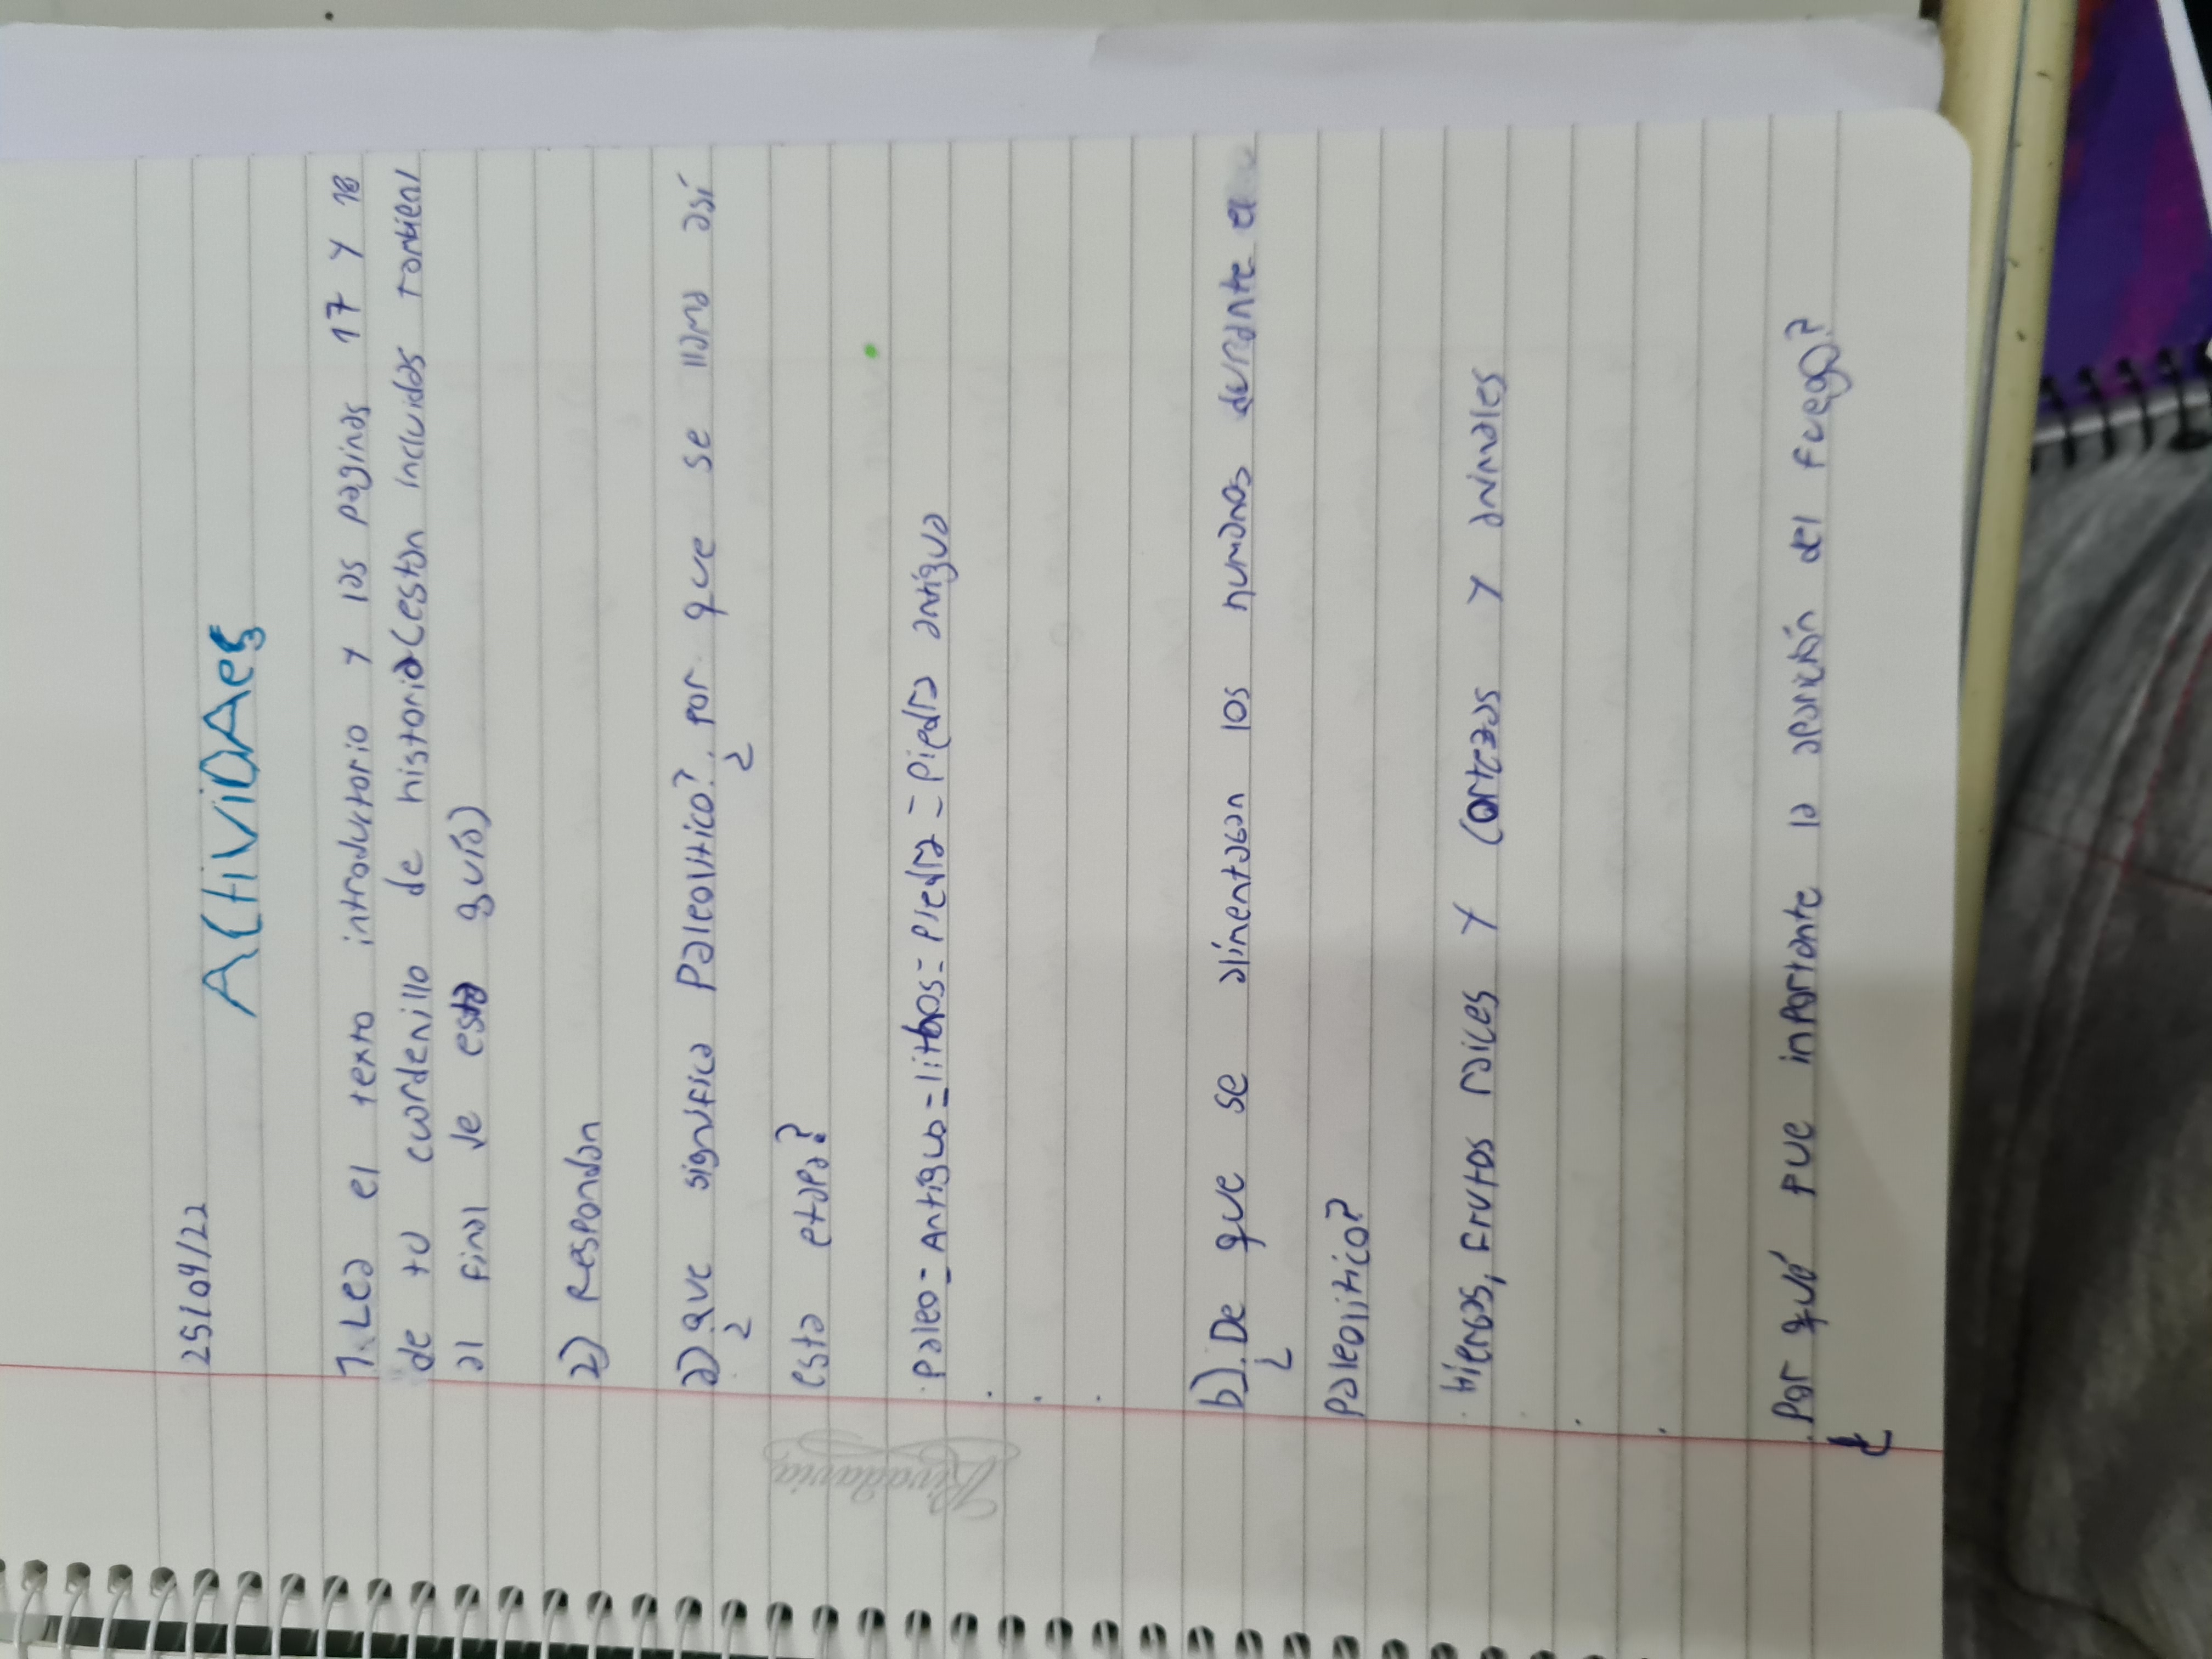 25/04/22
ActiviDAes
1. Lea el texto introductorio y las paginas 17 y 18
de tu cuardenillo de historia (estan incluidas tambien
al final de esta guía)
2) Respondan
a) ¿que significa Paleolitico? ¿por que se llama así
esta etapa?
Paleo = Antiguo = lithos = Piedra = Piedra antigua
b) ¿De que se alimentaban los humanos durante el
Paleolitico?
Hiervas, frutos raices y cortezas y animales
¿Por qué fue inportante la aparición del fuego?
Rivadavia